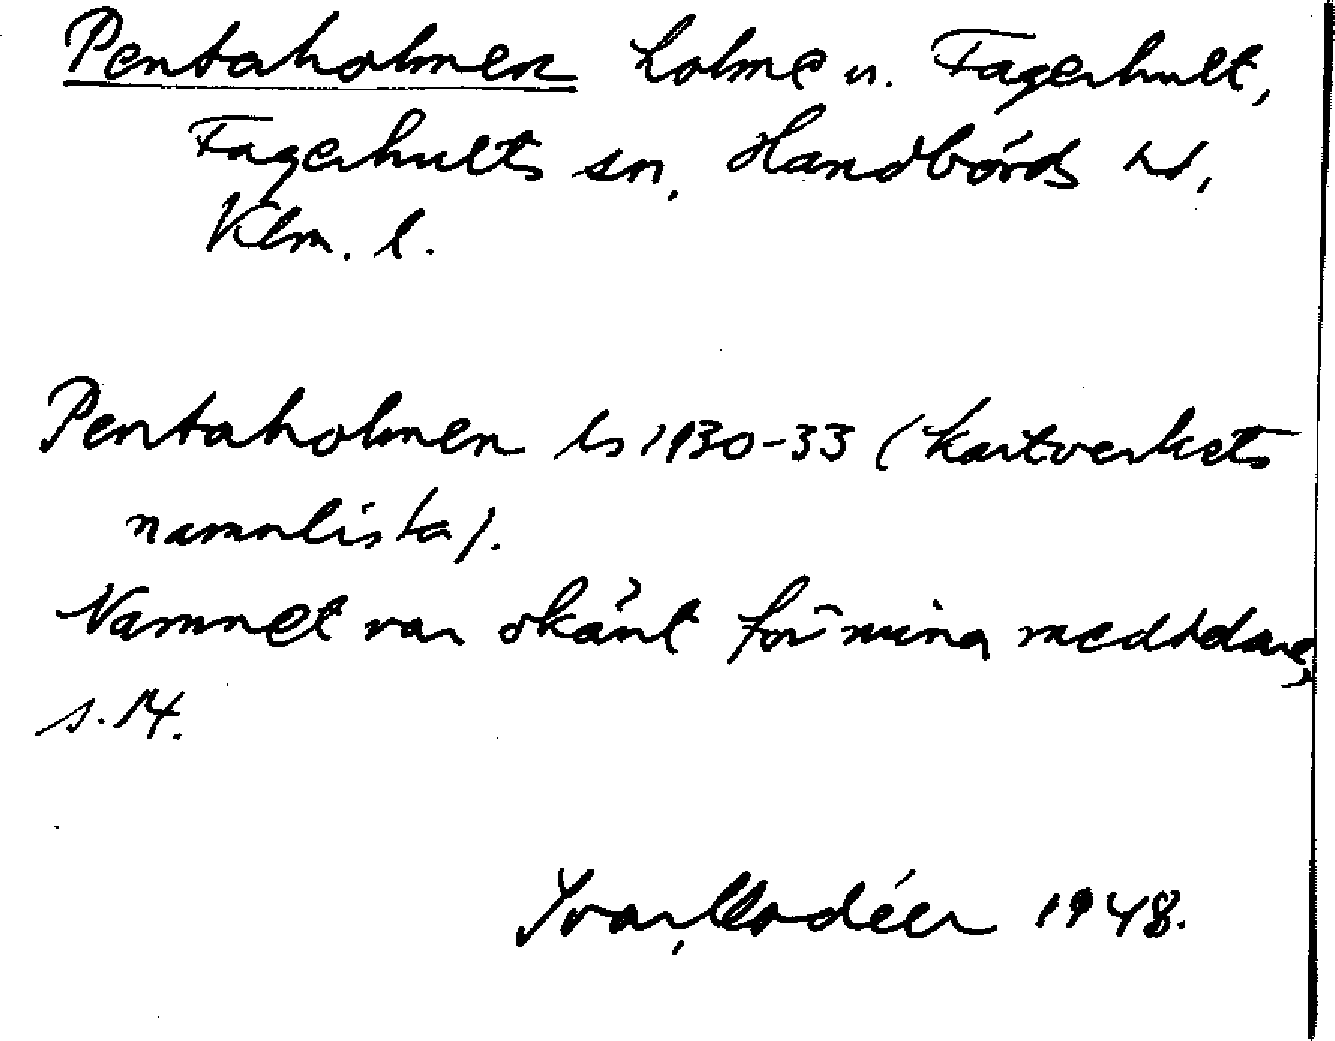 Pentaholmen holme u. Fagerhult,
Fagerhults sn, Handbörds hd,
Klm. l.
Pentaholmen ls 1930-33 (kartverkets
namnlista).
Namnet var okänt för mina meddelare,
s. 14.
Ivar Modéer 1948.